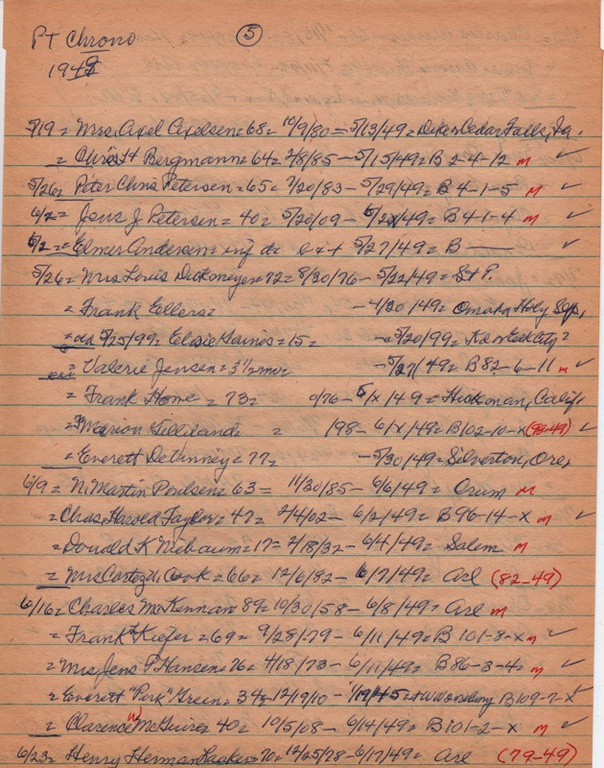 PT Chrono ⑤
1949
5/19 = Mrs. Axel Axelsen = 68 = 10/9/80 = 5/13/49 = Cedar Falls, Ia.
= Chris H Bergmann = 64 = 2/8/85 - 5/15/49 = B 2-4-12 m ✓
5/26 = Peter Chris Petersen = 65 = 7/20/83 - 5/29/49 = B 4-1-5 m ✓
6/2 = Jens J. Petersen = 40 = 5/20/09 - /49 = B 4-1-4 m ✓
6/2 = Elmer Andersen = inf da 5/27/49 = B — ✓
5/26 = Mrs Louis Dickmeyer = 72 = 8/30/76 - 5/22/49 = St P.
= Frank Eellers = - 4/30/49 = Omaha Holy Sep,
5/25/99 = Elsie Gaines = 15 = - 5/20/99 =
= Valerie Jensen = 3 1/2 mo = - 5/27/49 = B 82-6-11 m ✓
= Frank Howe = 73 = 0/76 - 5/x/49 = Hickman, Calif
= Marion Gilliland = = 198 - 6/x/49 = B102-10-x (98-49) ✓
= Everett DeTinney = 77 = - 5/30/49 = Silverton, Ore,
6/9 = N. Martin Poulsen = 63 = 11/30/85 - 6/6/49 = Orum m
= Chas, Harold Taylor = 47 = 2/4/02 - 6/2/49 = B 96-14-x m ✓
= Donald K Niebaum = 17 = 2/18/32 - 6/4/49 = Salem m
= Mrs Cortez U. Cook = 66 = 12/6/82 - 6/7/49 = Arl (82-49)
6/16 = Charles McKennan = 89 = 10/30/58 - 6/8/49 = Arl m
= Frank H Kiefer = 69 = 9/28/79 - 6/11/49 = B 101-8-x m ✓
= Mrs Jens P Hansen = 76 = 4/18/73 - 6/11/49 = B 86-3-4 m ✓
= Everett "Perk" Green = 34 = 12/19/10 - 1/19/45 = B109-7-x ✓
= Clarence W McGuire = 40 = 10/5/08 - 6/14/49 = B101-2-x m ✓
6/23 = Henry Herman = 70 = 12/25/78 - 6/17/49 = Arl (79-49)